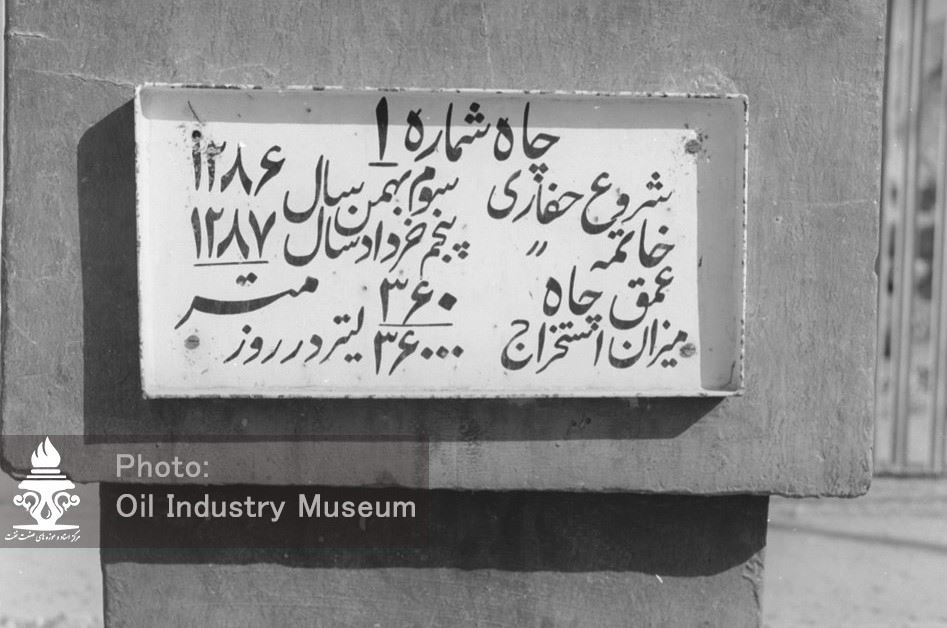 چاه شماره ۱
شروع حفاری سوم بهمن سال ۱۲۸۶
خاتمه " پنجم خرداد سال ۱۲۸۷
عمق چاه ۳۶۰ متر
میزان استخراج ۳۶۰۰۰ لیتر در روز
Photo:
Oil Industry Museum
مرکز اسناد و موزه های صنعت نفت